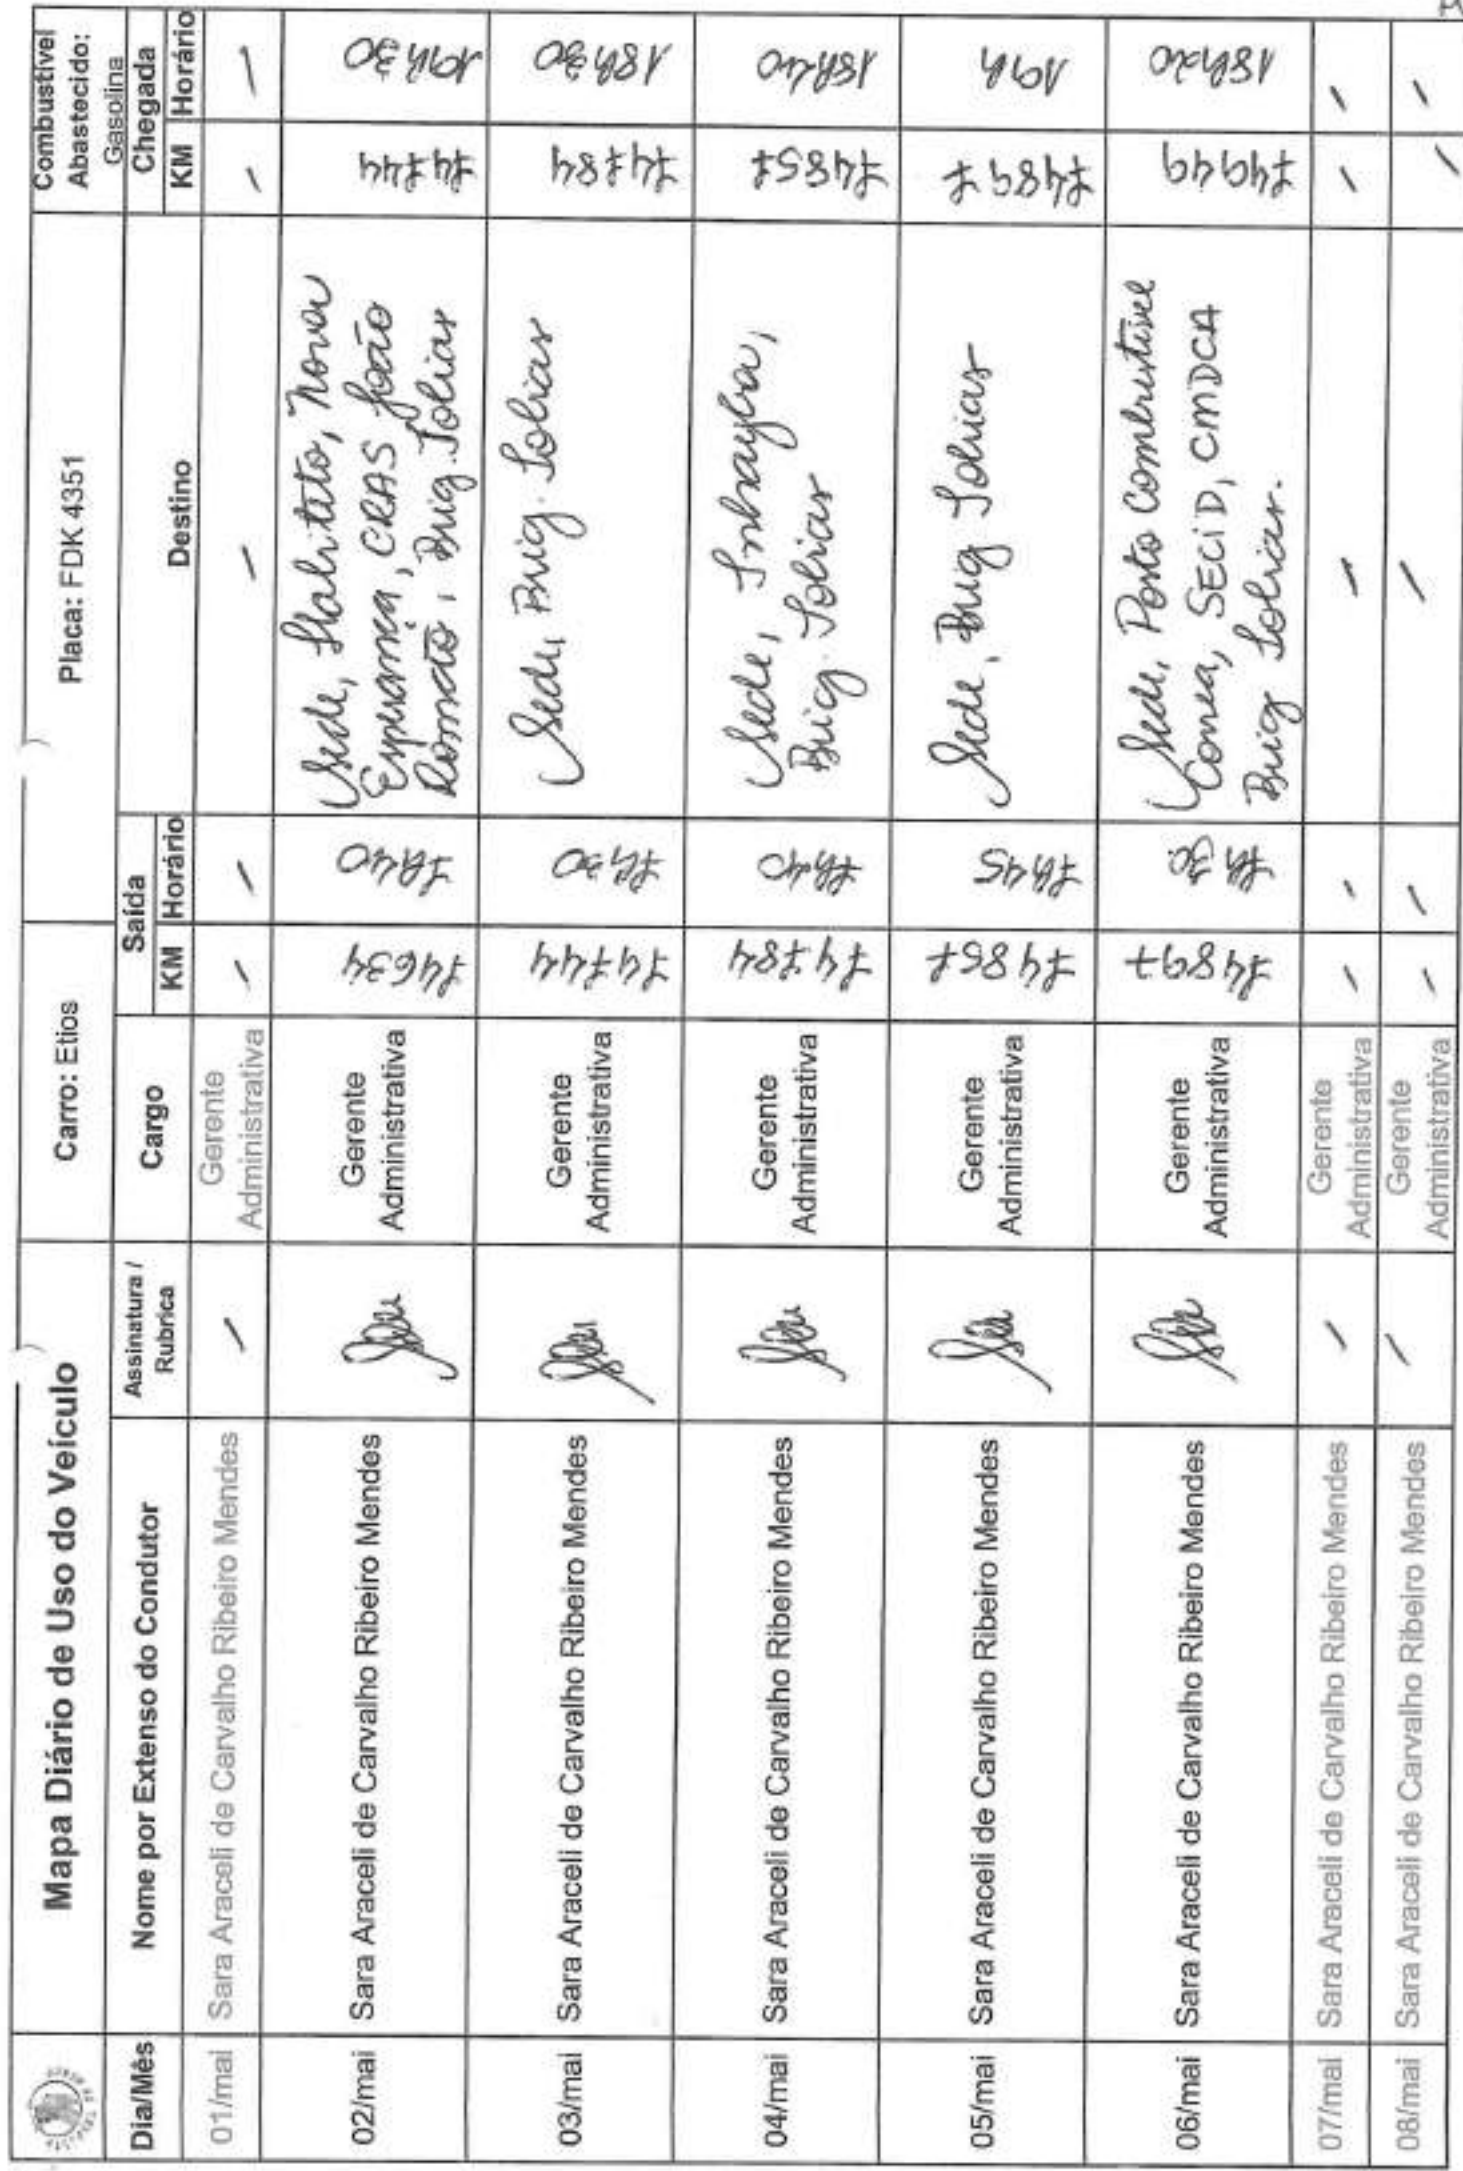 Mapa Diário de Uso do Veículo Carro: Etios Placa: FDK 4351 Combustível
Abastecido:
Gasolina
Dia/Mês Nome por Extenso do Condutor Assinatura / Rubrica Cargo Saída Destino Chegada
KM Horário KM Horário
01/mai Sara Araceli de Carvalho Ribeiro Mendes / Gerente Administrativa / / / / /
02/mai Sara Araceli de Carvalho Ribeiro Mendes Gerente Administrativa 74634 7h40 Sede, Habiteto, Nova
Esperança, CRAS João
Romão, Brig. Tobias 74744 19h30
03/mai Sara Araceli de Carvalho Ribeiro Mendes Gerente Administrativa 74744 7h30 Sede, Brig. Tobias 74784 18h30
04/mai Sara Araceli de Carvalho Ribeiro Mendes Gerente Administrativa 74784 7h40 Sede,
Brig. Tobias 74857 18h40
05/mai Sara Araceli de Carvalho Ribeiro Mendes Gerente Administrativa 74857 7h45 Sede, Brig Tobias 74897 19h
06/mai Sara Araceli de Carvalho Ribeiro Mendes Gerente Administrativa 74897 7h30 Sede, Posto Combustível
Correa, SECiD, CMDCA
Brig Tobias. 74949 18h20
07/mai Sara Araceli de Carvalho Ribeiro Mendes / Gerente Administrativa / / / / /
08/mai Sara Araceli de Carvalho Ribeiro Mendes / Gerente Administrativa / / / / /